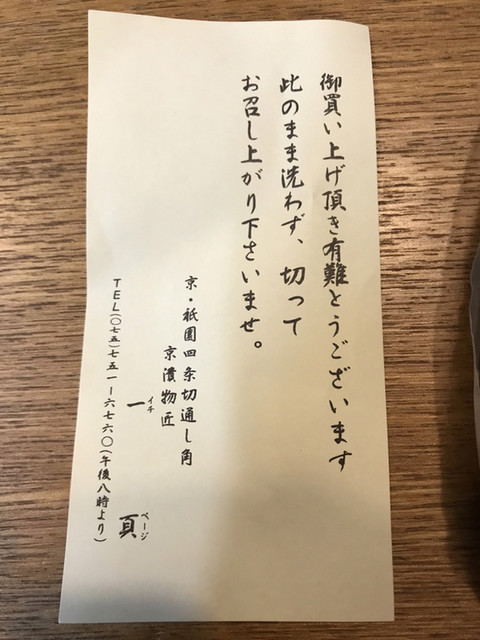 御買い上げ頂き有難とうございます
此のまま洗わず、切って
お召し上がり下さいませ。
京・祇園四条切通し角
京漬物匠
一頁
イチ
ページ
TEL(〇七五)七五一ー六七六〇(午後八時より)